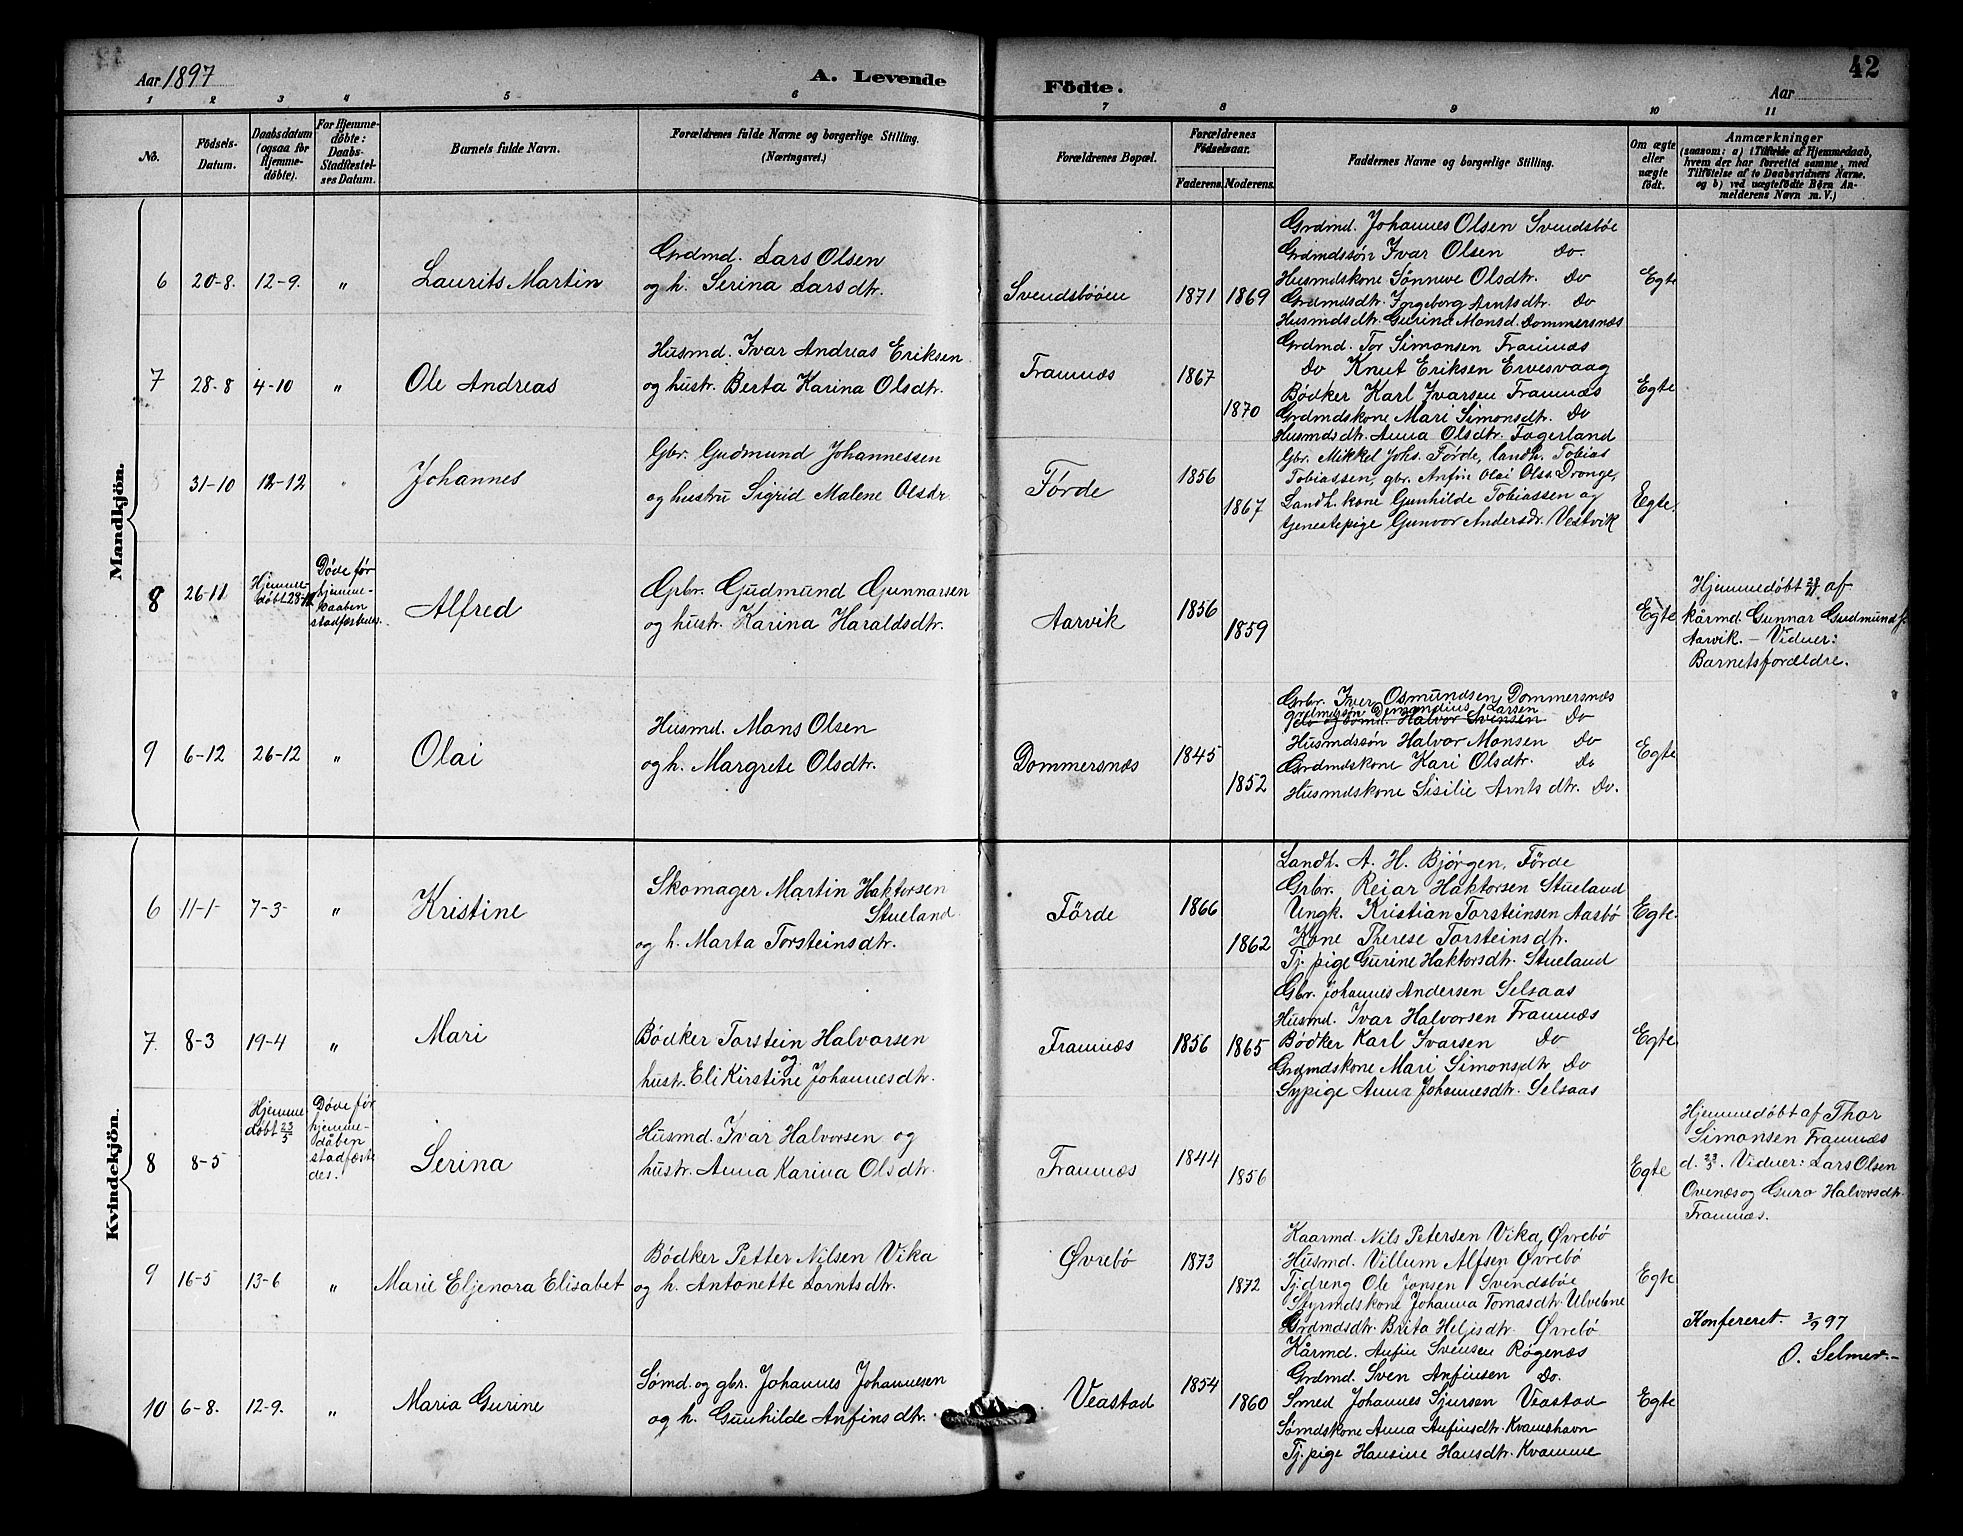 Aar 1897
A. Levende
Födte.
42
Aar
1 2 3 4 5 6 7 8 9 10 11
No.
Födsels-
Datum.
Daabsdatum
(ogsaa for
Hjemme-
döbte).
For Hjemme-
döbte:
Daabs-
Stadfæstel-
ses Datum.
Barnets fulde Navn.
Forældrenes fulde Navne og borgerlige Stilling.
(Næringsvei.)
Forældrenes Bopæl.
Forældrenes
Födselsaar.
Faderens. Moderens.
Faddernes Navne og borgerlige Stilling.
Om ægte
eller
uægte
födt.
Anmærkninger
(saasom: a) i Tilfælde af Hjemmedaab,
hvem der har forrettet samme, med
Tilföielse af to Daabsvidners Navne,
og b) ved uægtefödte Börn An-
melderens Navn m. V.)
Mandkjön.
6 20-8. 12-9. " Laurits Martin
Grdmd. Lars Olsen
og h. Serina Larsdtr.
Svendsböen 1871 1869
Grdmd. Johannes Olsen Svendsböe
Grdmdssön Ivar Olsen Do.
Husmdskone Sönneve Olsdtr. Do
Grdmdsdtr. Ingeborg Arntsdtr. Do
Husmdsdtr. Gurina Monsd. Dommersnæs
Egte
7 28-8 4-10 " Ole Andreas
Husmd. Ivar Andreas Eriksen
og hustr. Berta Karina Olsdtr.
Framnæs 1867 1870
Grdmd. Tor Simonsen Framnæs
Do Knut Eriksen Ervesvaag
Bödker Karl Ivarsen Framnæs
Grdmdskone Mari Simonsdtr. Do
Husmdsdtr. Anna Olsdtr. Fagerland
Egte
31-10 12-12 " Johannes
Gbr. Gudmund Johannessen
og hustru Sigrid Malene Olsdr.
Förde 1856 1867
Gbr. Mikkel Johs. Förde, landh. Tobias
Tobiassen, gbr. Anfin Olai Olss. Drange,
Landh. kone Gunhilde Tobiassen og
tjenestepige Gunvor Andersdr. Vestvik
Egte.
8 26-11 Hjemme-
döbt 28-11
Døde før
hjemme-
daaben
stadfæstedes.
Alfred
Gbr. Gudmund Gunnarsen
og hustr. Karina Haraldsdtr.
Aarvik 1856 1859
Egte
Hjemmedøbt 28/11 af
kårmd. Gunnar Gudmunds.
Aarvik. – Vidner:
Barnetsforældre.
9 6-12 26-12 " Olai
Husmd. Mons Olsen
og h. Margrete Olsdtr.
Dommersnæs 1845 1852
Grbr. Iver Osmundsen Dommersnæs
Grdmdssön Larsen
Halvor Svensen Do
Husmdssön Halvor Monsen Do
Grdmdskone Kari Olsdtr. Do
Husmdskone Sisilie Arntsdtr. Do.
Egte
Kvindekjön.
6 11-1 7-3 " Kristine
Skomager Martin Haktorsen
Stueland
og h. Marta Torsteinsdtr.
Förde 1866 1862
Landh. A. H. Bjørgen, Förde
Grbr. Reiar Haktorsen Stueland
Ungk. Kristian Torsteinsen Aasbö
Kone Therese Torsteinsdtr.
Tj. pige Gurine Haktorsdtr. Stueland
Egte
7 8-3 19-4 " Mari
Bödker Torstein Halvorsen
og
hustr. Eli Kirstine Johannesdtr.
Framnæs 1856 1865
Gbr. Johannes Andersen Selsaas
Husmd. Ivar Halvorsen Framnæs
Bödker Karl Ivarsen Do
Grdmdskone Mari Simonsdtr Do
Sypige Anna Johannesdtr. Selsaas
Egte
8 8-5 Hjemme
döbt 23/5
Døde før
hjemme-
dåben
stadfæste
des.
Serina
Husmd. Ivar Halvorsen og
hustr. Anna Karina Olsdtr.
Framnæs 1844 1856
Egte
Hjemmedøbt af Thor
Simonsen Framnæs
d. 23/5. Vidner: Lars Olsen
Ovenæs og Guro Halvorsdtr.
Framnæs.
9 16-5 13-6 " Marie Eljenora Elisabet
Bödker Petter Nilsen Vika
og h. Antonette Larntsdtr.
Øvrebö 1873 1872
Kaarmd. Nils Petersen Vika, Øvrebö
Husmd. Villum Alfsen Øvrebö
Tjdreng Ole Jonsen Svendsböe
Styrmdskone Johanna Tomasdtr. Ulvelne
Grdmdsdtr. Brita Heljesdtr. Øvrebö
Egte
Konfereret. 3/9 97
O. Selmer.
10 6-8. 12-9. " Maria Gurine
Sømd. og gbr. Johannes Johannesen
og h. Gunhilde Anfinsdtr.
Veastad 1854 1860
Kårmd. Anfin Svensen Røgenæs
Grdmd. Sven Anfinsen Do.
Smed Johannes Sjursen Veastad
Sømdskone Anna Anfinsdtr. Kvamshavn
Tj. pige Hansine Hansdtr. Kvamme
Egte